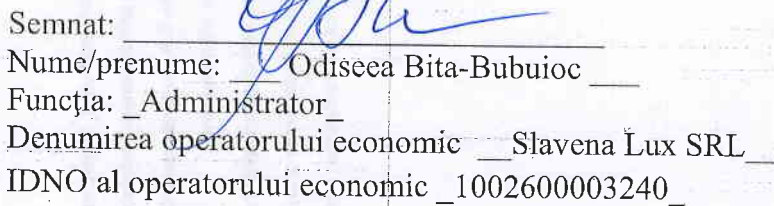 Semnat: ____________________
Nume/prenume: ___ Odiseea Bita-Bubuioc ___
Funcţia: _Administrator_
Denumirea operatorului economic __Slavena Lux SRL__
IDNO al operatorului economic _1002600003240_